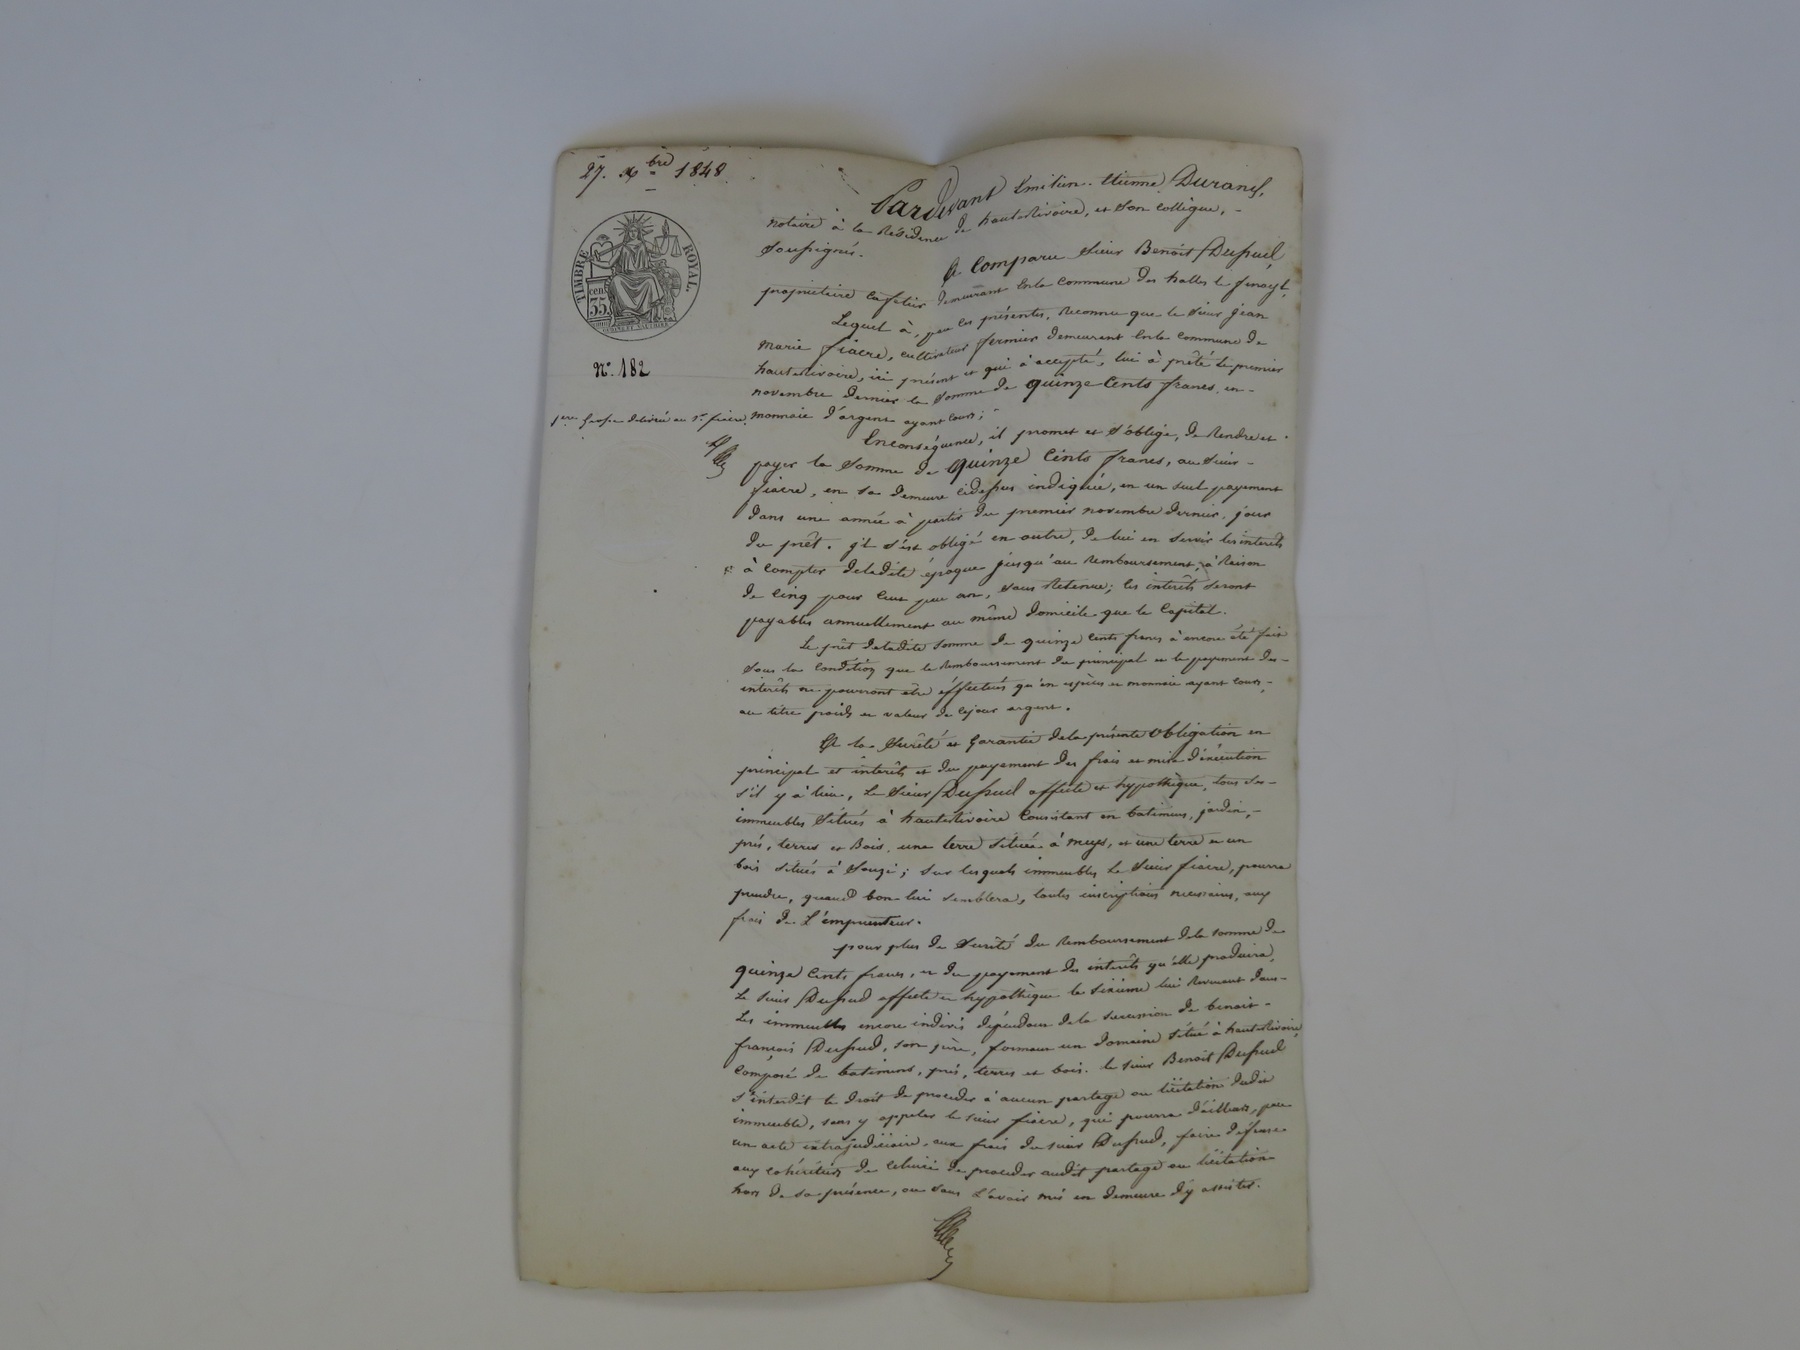 27. Xbre 1848
TIMBRE ROYAL
cent. 35
N° 182
1ere Grosse délivrée au Sr fiacre
Pardevant Emilien-Etienne Durand,
notaire à la Résidence de hauterivoire, et son collègue, -
Soussignés.
A Comparu Sieur Benoit Dupuel,
propriétaire cafetier demeurant en la commune des halles le fenoyl,
Lequel à, par ces présentes, Reconnu que le Sieur jean
marie fiacre, cultivateur fermier demeurant en la commune de
hauterivoire, ici présent et qui à accepté, lui à prêté le premier
novembre dernier la somme de quinze Cents francs, en -
monnaie d'argent ayant cours;
Enconséquence, il promet et s'oblige, de Rendre et
payer la Somme de quinze Cents francs, au Sieur -
fiacre, en sa demeure cidessus indiquée, en un seul payement
dans une année à partir du premier novembre dernier, jour
du prêt. il s'est obligé en outre, de lui en servir les intérêts
à compter deladite époque jusqu'au Remboursement, à Raison
de cinq pour Cent par an, sans Retenue; les intérêts seront
payables annuellement au même domicile que le Capital.
Le prêt deladite somme de quinze cents francs à encore été fait
sous la condition que le Remboursement du principal et le payement des -
intérêts ne pourront être éffectués qu'en espèces et monnaie ayant cours,
au titre poids et valeur de cejour argent.
A la Sureté et Garantie dela présente Obligation en
principal et intérêts et du payement des frais et mise d'éxécution
s'il y à lieu, Le Sieur Dupuel affecte et hypothèque, tous ses -
immeubles Situés à hauterivoire Consistant en batimens, jardin, -
prés, terres et Bois, une terre située à meys, et une terre et un
bois situés à Souzi; sur lesquels immeubles Le Sieur fiacre, pourra
prendre, quand bon lui semblera, toutes inscriptions nécessaires, aux
frais de L'emprunteur.
pour plus de Sureté du Remboursement dela somme de
quinze Cents francs, et du payement des intérêts qu'elle produira,
Le sieur Dupuel affecte et hypothèque le sixième lui Revenant dans -
Les immeubles encore indivis dépendans dela succession de benoit -
françois Dupuel, son père, formant un domaine situé à hauterivoire,
composé de batimens, prés, terres et bois. le sieur Benoit Dupuel
s'interdit le droit de proceder à aucun partage ou licitation dudit
immeuble, sans y appeler le sieur fiacre, qui pourra d'ailleurs, par
un acte extrajudiciaire, aux frais du sieur Dupuel, faire défense
aux cohéritiers de celuici de proceder audit partage ou licitation
hors de sa présence, ou sans L'avoir mis en demeure d'y assister.